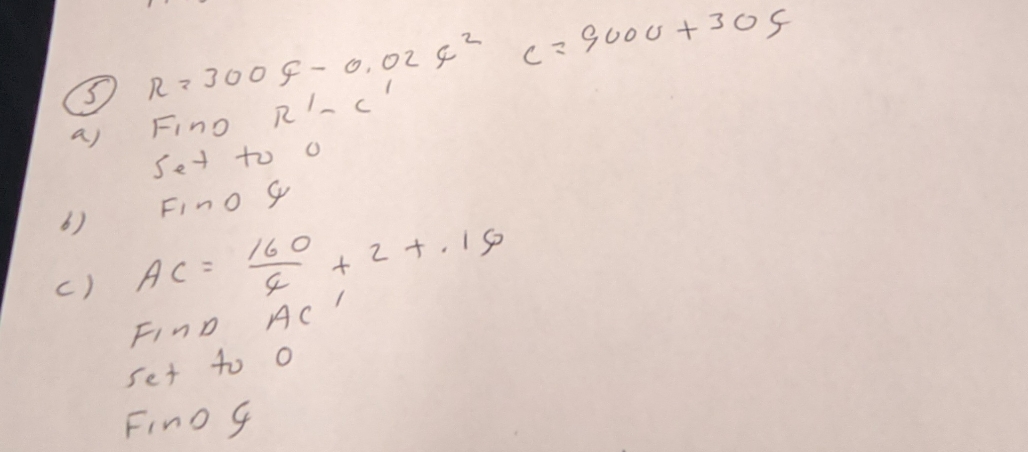 (5) R = 300q - 0.02q² C = 9000 + 30q
a) Find R' - C'
Set to 0
b) Find q
c) AC = 160/q + 2 + .1q
Find AC'
Set to 0
Find q